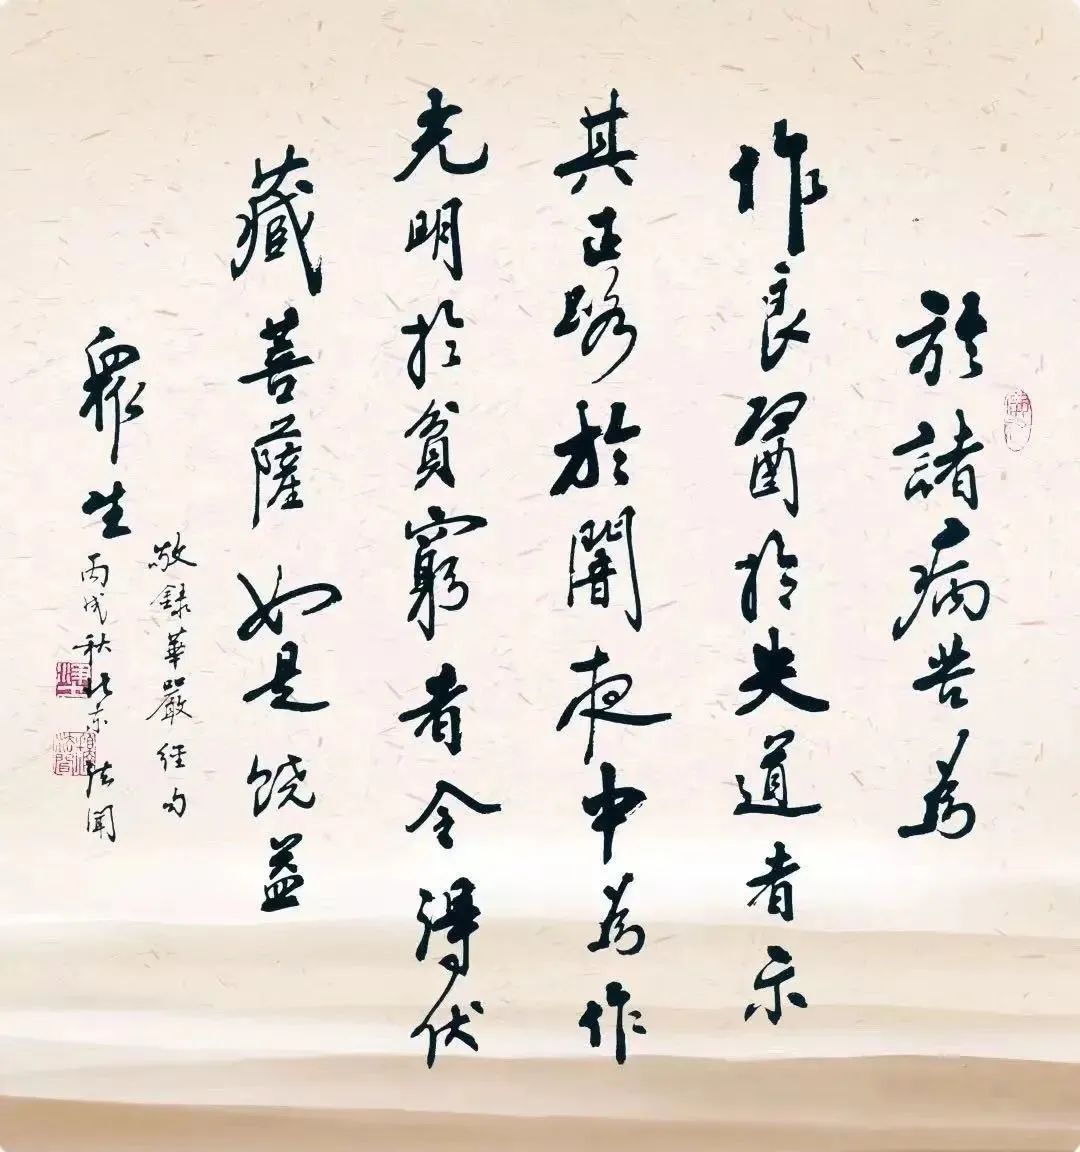 於諸病苦為
作良醫於失道者示
其正路於闇夜中為作
光明於貧窮者令得伏
藏菩薩如是饶益
眾生
敬録華嚴经句
丙戌秋北京法聞